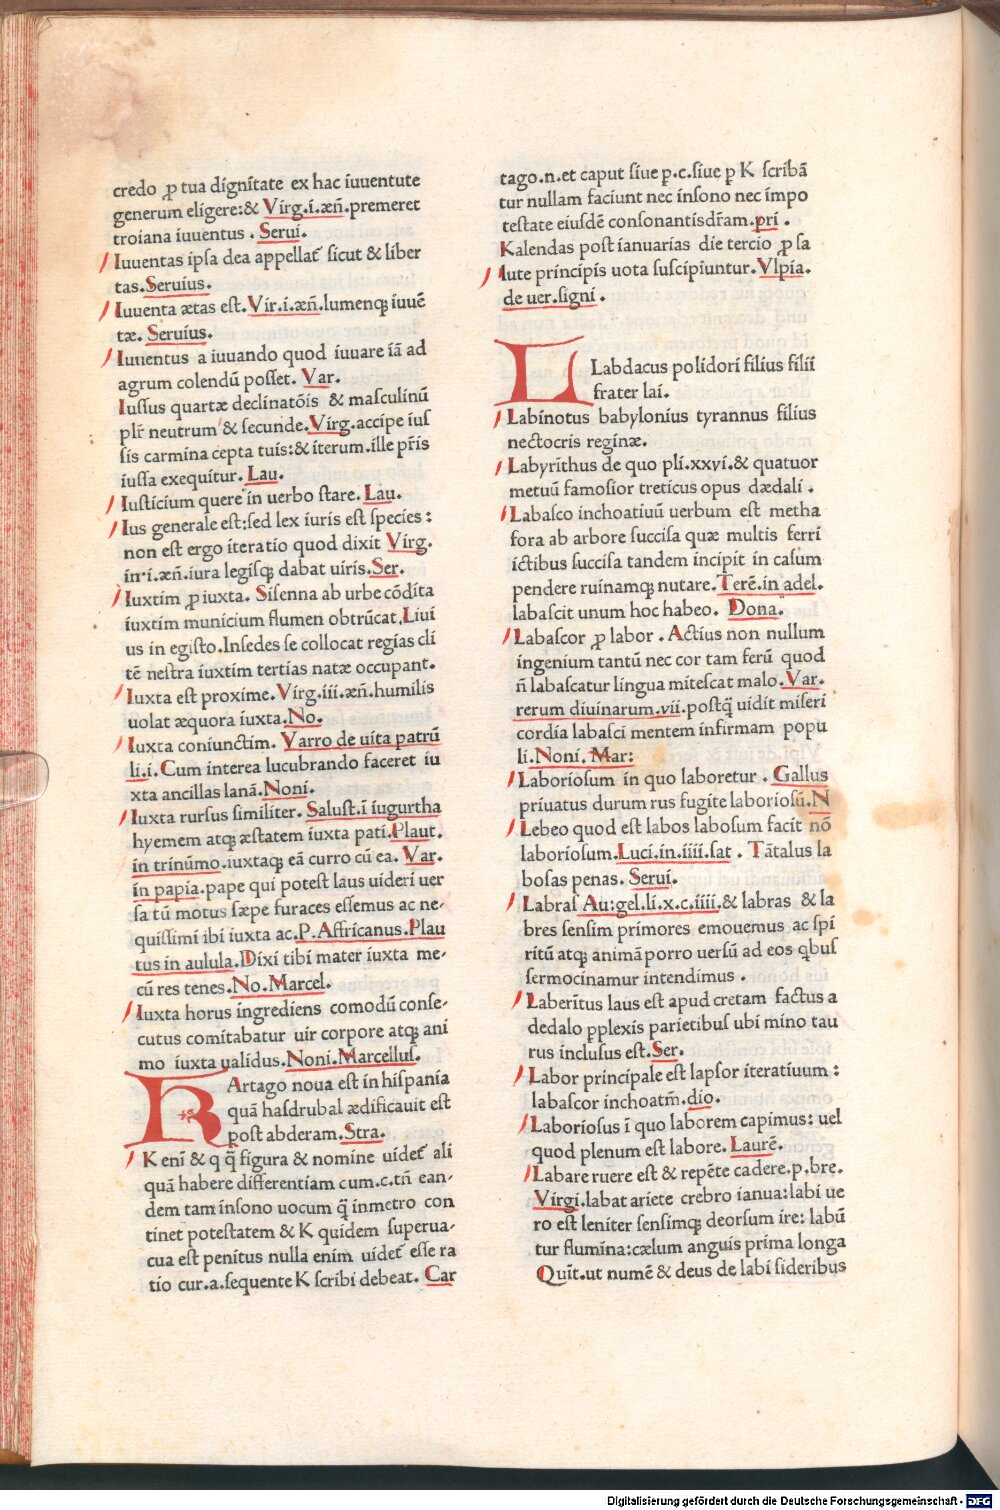 credo ꝓ tua dignitate ex hac iuuentute
generum eligere:& Virg.i.æn̄.premeret
troiana iuuentus . Serui.
Iuuentas ipsa dea appellat᷒ sicut & liber
tas.Seruius.
Iuuenta ætas est.Vir.i.æn̄.lumenqꝫ iuuē
tæ. Seruius.
Iuuentus a iuuando quod iuuare iā ad
agrum colendū posset. Var.
Iussus quartæ declinatōis & masculinū
plr̄ neutrum & secunde.Virg.accipe ius
sis carmina cepta tuis:& iterum.ille pr̄is
iussa exequitur. Lau.
Iusticium quere in uerbo stare. Lau.
Ius generale est:sed lex iuris est species:
non est ergo iteratio quod dixit Virg.
in.i.æn̄.iura legisqꝫ dabat uiris.Ser.
Iuxtim ꝓ iuxta. Sisenna ab urbe cōdita
iuxtim municium flumen obtrūcat.Liui
us in egisto.Insedes se collocat regias cli
tē nestra iuxtim tertias natæ occupant.
Iuxta est proxime.Virg.iii.æn̄.humilis
uolat æquora iuxta.No.
Iuxta coniunctim. Varro de uita patrū
li.i.Cum interea lucubrando faceret iu
xta ancillas lanā.Noni.
Iuxta rursus similiter. Salust.ī iugurtha
hyemem atqꝫ æstatem iuxta pati.Plaut.
in trinūmo.iuxtaqꝫ eā curro cū ea. Var.
in papia.pape qui potest laus uideri uer
sa tū motus sæpe furaces essemus ac ne-
quissimi ibi iuxta ac.P.Affricanus.Plau
tus in aulula.Dixi tibi mater iuxta me-
cū res tenes.No.Marcel.
Iuxta horus ingrediens comodū conse-
cutus comitabatur uir corpore atqꝫ ani
mo iuxta ualidus.Noni.Marcellus.
KArtago noua est in hispania
quā hasdrubal ædificauit est
post abderam.Stra.
K enī & q q̄ figura & nomine uidet᷒ ali
quā habere differentiam cum.c.tn̄ ean-
dem tam insono uocum q̄ inmetro con
tinet potestatem & K quidem superua-
cua est penitus nulla enim uidet᷒ esse ra
tio cur.a.sequente K scribi debeat. Car
tago.n.et caput siue p.c.siue p K scribā
tur nullam faciunt nec insono nec impo
testate eiusdē consonantis dr̄am.pri .
Kalendas post ianuarias die tercio ꝓ sa
lute principis uota suscipiuntur.Vlpia.
de uer.signi .
LLabdacus polidori filius filii
frater lai.
Labinotus babylonius tyrannus filius
nectocris reginæ.
Labyrithus de quo pli.xxvi.& quatuor
metuū famosior treticus opus dædali .
Labasco inchoatiuū uerbum est metha
fora ab arbore succisa quæ multis ferri
ictibus succisa tandem incipit in casum
pendere ruinamqꝫ nutare.Terē.in adel.
labascit unum hoc habeo. Dona.
Labascor ꝓ labor . Actius non nullum
ingenium tantū nec cor tam ferū quod
n̄ labascatur lingua mitescat malo.Var.
rerum diuinarum.vii.postq̄ uidit miseri
cordia labasci mentem infirmam popu
li.Noni. Mar:
Laboriosum in quo laboretur . Gallus
priuatus durum rus fugite laboriosū.N
Lebeo quod est labos labosum facit nō
laboriosum.Luci.in.iiii.sat . Tātalus la
bosas penas. Serui.
Labras Au:gel.li.x.c.iiii.& labras & la
bres sensim primores emouemus ac spi
ritū atqꝫ animā porro uersū ad eos qbus
sermocinamur intendimus .
Laberītus laus est apud cretam factus a
dedalo pplexis parietibus ubi mino tau
rus inclusus est.Ser.
Labor principale est lapsor iteratiuum :
labascor inchoatm̄.dio.
Laboriosus ī quo laborem capimus: uel
quod plenum est labore. Laurē.
Labare ruere est & repēte cadere.p.bre.
Virgi.labat ariete crebro ianua:labi ue
ro est leniter sensimqꝫ deorsum ire: labū
tur flumina:cælum anguis prima longa
Quīt.ut numē & deus de labi sideribus
Digitalisierung gefördert durch die Deutsche Forschungsgemeinschaft - DFG